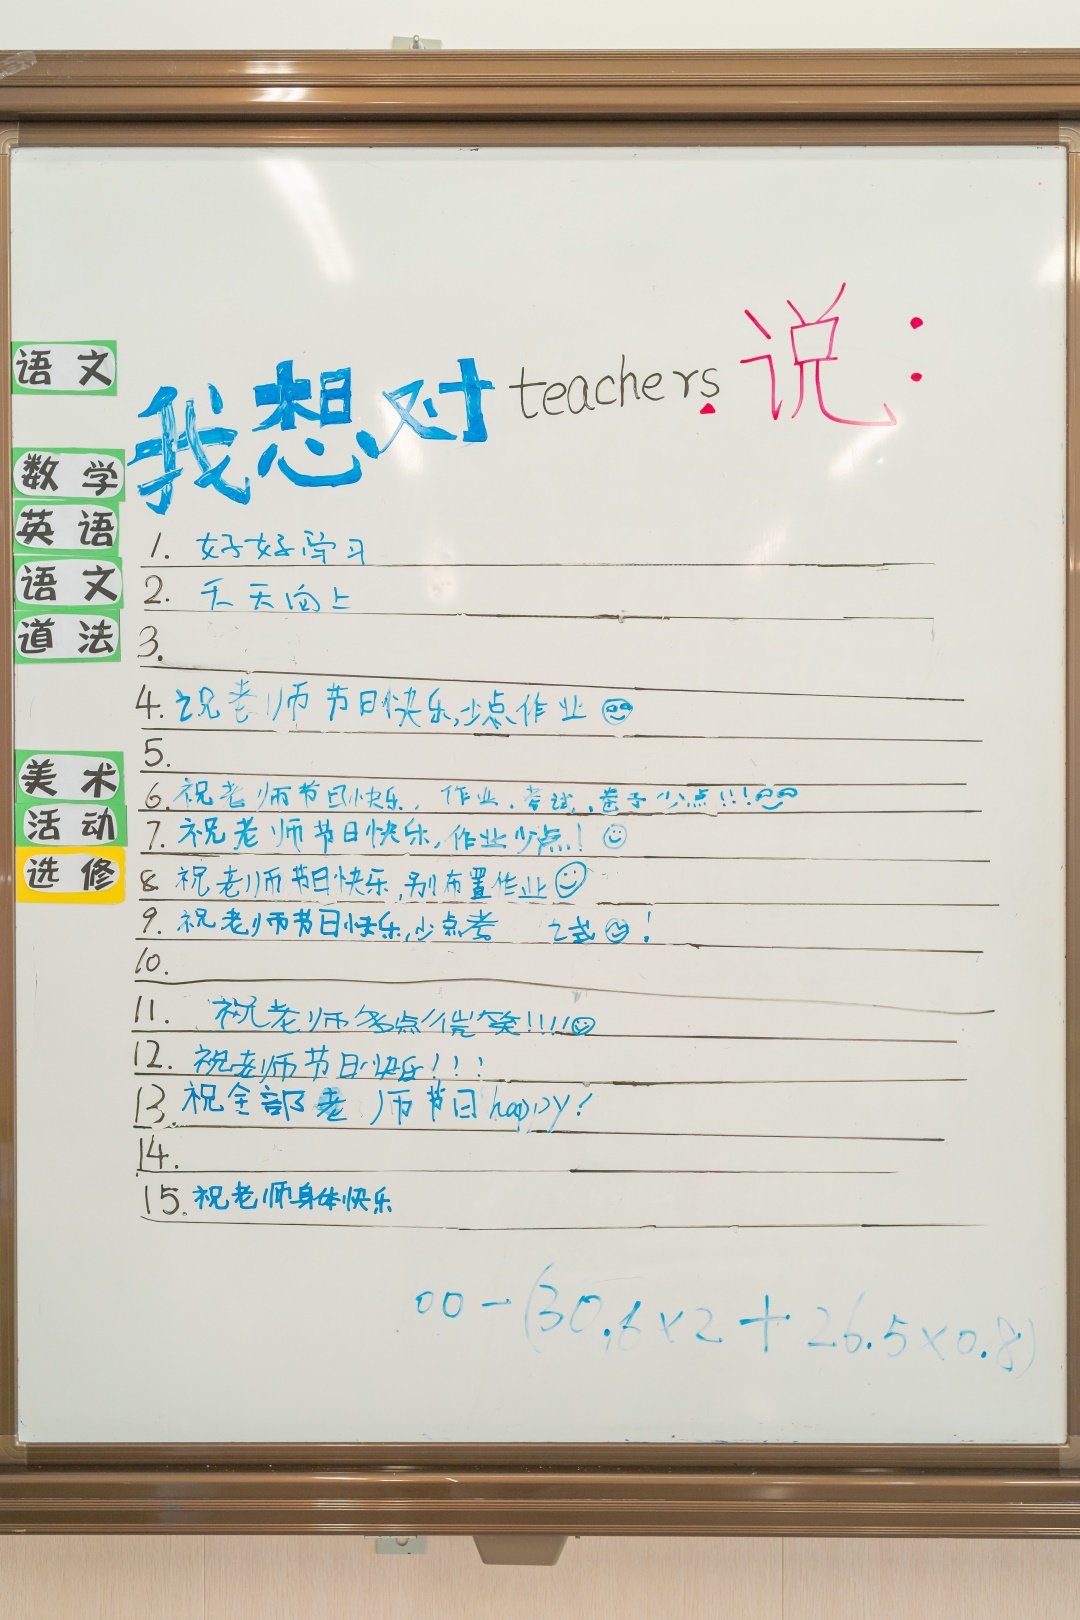 语文
我想对teachers说:
数学
英语
1. 好好学习
语文
2. 天天向上
道法
3.
4. 祝老师节日快乐,少点作业
美术
5.
6. 祝老师节日快乐,作业,考试,卷子少点!!!
活动
7. 祝老师节日快乐,作业少点!
选修
8 祝老师节日快乐,别布置作业
9. 祝老师节日快乐,少点考 试!
10.
11. 祝老师多点微笑!!!!
12. 祝老师节日快乐!!!
13. 祝全部老师节日happy!
14.
15. 祝老师身体快乐
00-(30.6×2+26.5×0.8)